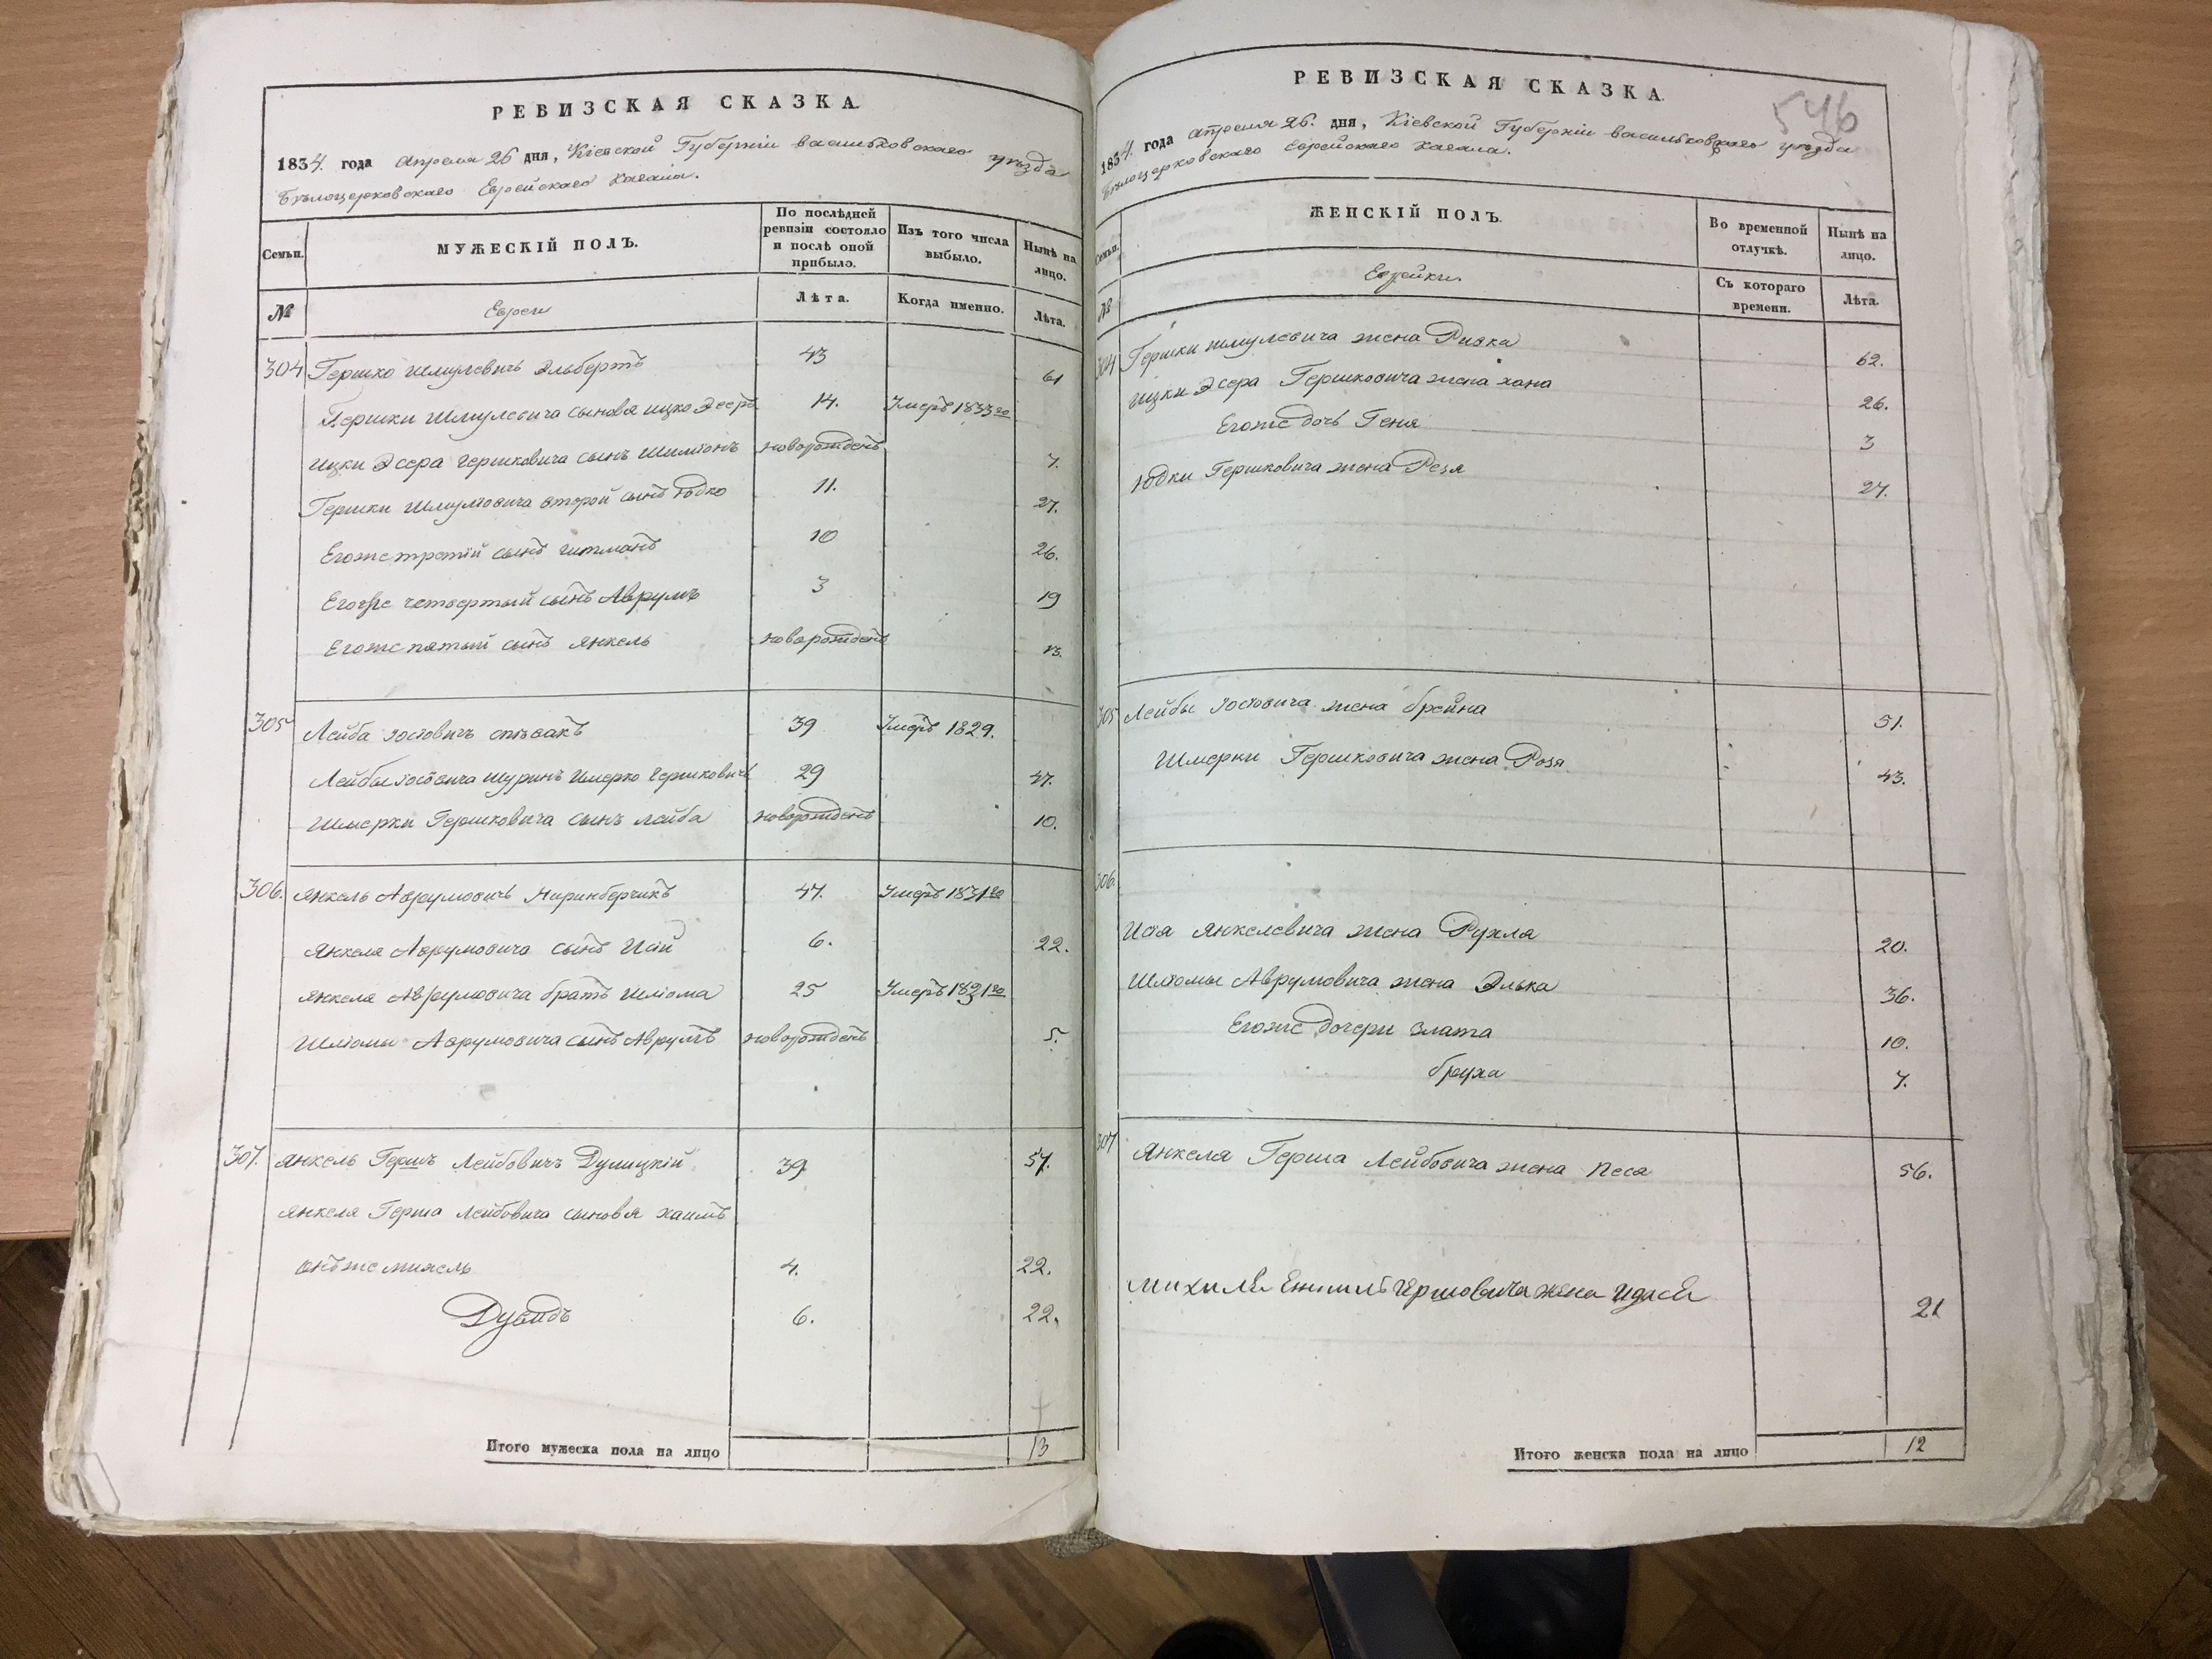 РЕВИЗСКАЯ СКАЗКА.
1834. года Апреля 26 дня, Кіевской Губерніи васильковскаго уѣзда
Бѣлоцерковскаго Еврейскаго Кагала.
Семьи.
МУЖЕСКІЙ ПОЛЪ.
По послѣдней ревизіи состояло и послѣ оной прибыло.
Изъ того числа выбыло.
Нынѣ на лицо.
№
Евреи
Лѣта.
Когда именно.
Лѣта.
304 Гершко Шмулевичъ Эльбертъ 43 61
Гершки Шмулевича сыновя ицко Эсеръ 14. Умеръ 1833го
Ицки Эсера Гершковича сынъ Шимонъ новорожденъ 7.
Гершки Шмулювича второй сынъ Юдко 11. 27.
Егоже третій сынъ гитманъ 10 26.
Егоже четвертый сынъ Аврумъ 3 19
Егоже пятый сынъ янкель новорожденъ 13.
305 Лейба іосювичъ співакъ 39 Умеръ 1829.
Лейбы іосювича шуринъ Шмерко гершковичъ 29 47.
Шмерки Гершковича сынъ лейба новорожденъ 10.
306. янкель Аврумовичъ Ниринберчикъ 47. Умеръ 1831го
янкеля Аврумовича сынъ Исій 6. 22.
янкеля Аврумовича братъ Шліома 25 Умеръ 1831го
Шліомы Аврумовича сынъ Аврумъ новорожденъ 5.
307. янкель Гершъ Лейбовичъ Дулицкій 39 57.
янкеля Герша лейбовича сыновя хаимъ
онъже михель 4. 22.
Дувидъ 6. 22.
Итого мужеска пола на лицо 13
РЕВИЗСКАЯ СКАЗКА.
546
1834. года Апреля 26. дня, Кіевской Губерніи васильковскаго уѣзда
Бѣлоцерковскаго Еврейскаго Кагала.
Семьи.
ЖЕНСКІЙ ПОЛЪ.
Во временной отлучкѣ.
Нынѣ на лицо.
№
Еврейки.
Съ котораго времени.
Лѣта.
304 Гершки шмулевича жена Ривка 62.
ицки Эсера Гершковича жена хана 26.
Егоже дочь Геня 3
Юдки Гершковича жена Резя 27.
305 Лейбы іосювича жена брейна 51.
Шмерки Гершковича жена Розя 43.
306.
Исія янкелевича жена Рухля 20.
Шліомы Аврумовича жена Элька 36.
Егоже дочери злата 10.
бруха 7.
307 Янкеля Герша Лейбовича жена Песя 56.
Гершовича жена 21
Итого женска пола на лицо 12